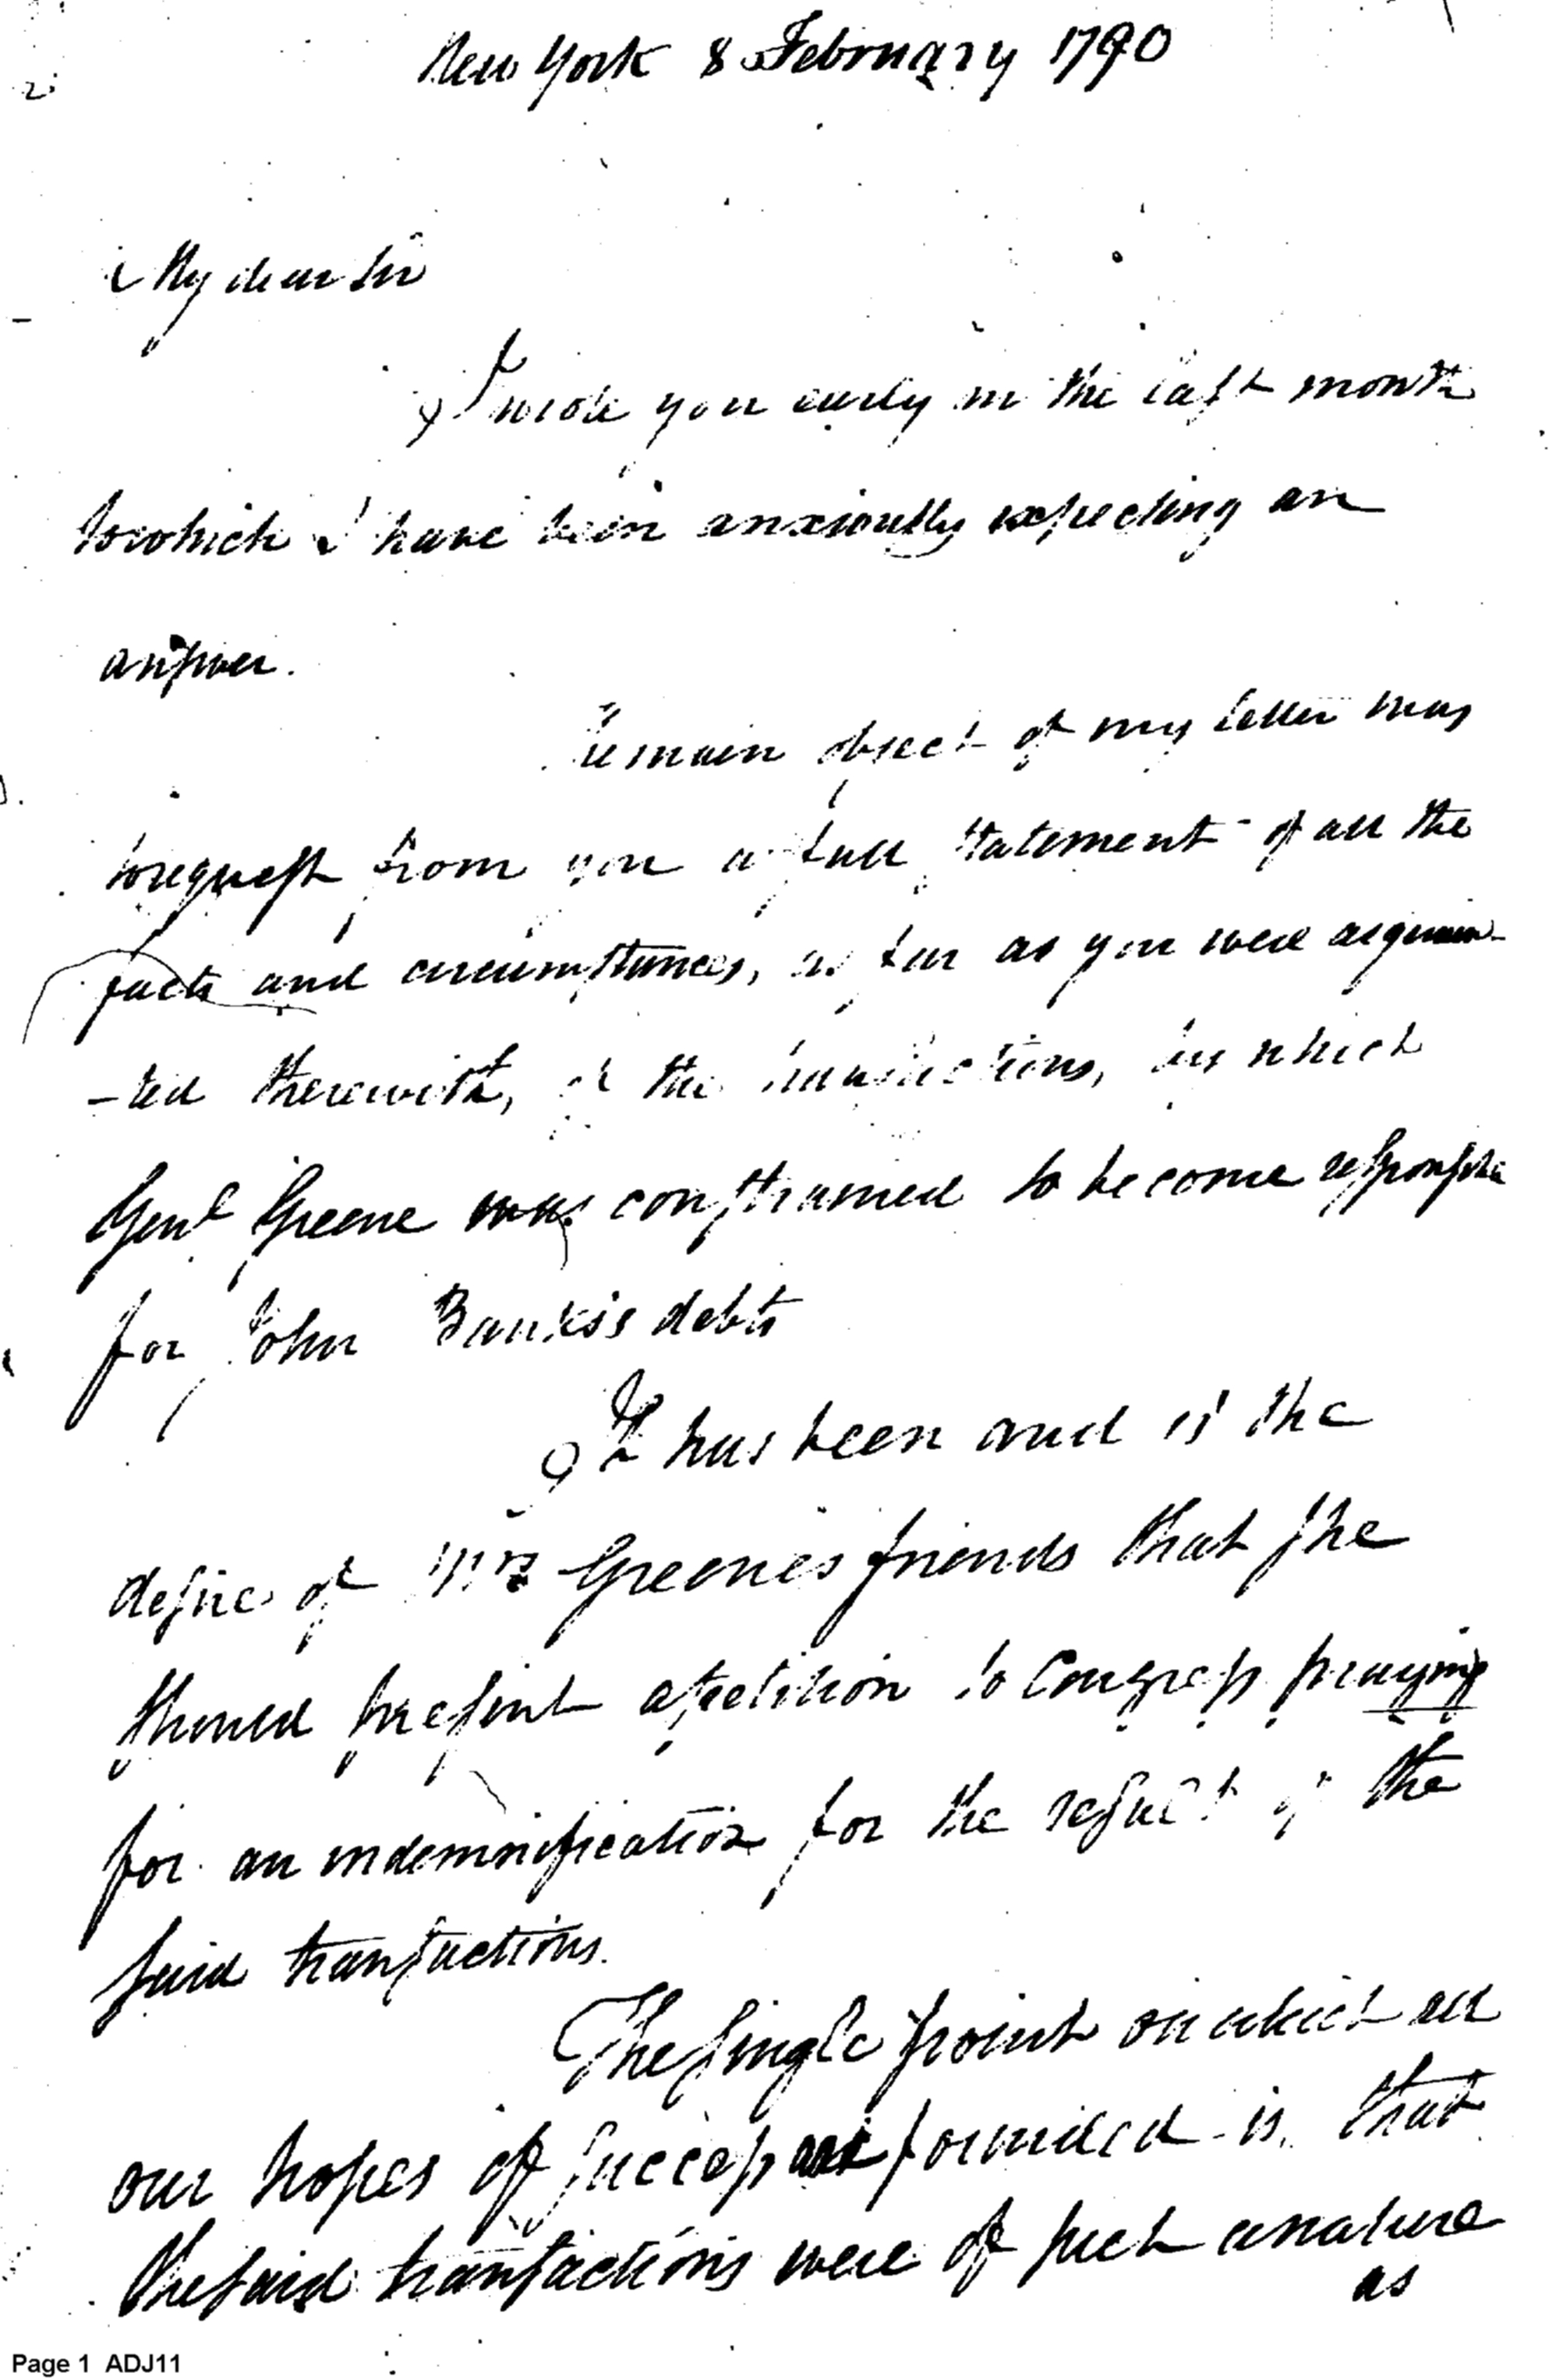 New York 8 February 1790
My dear Sir
I wrote you early in the last month
to which I have been anxiously expecting an
answer.
The main object of my letter was
to request from you a full statement of all the
facts and circumstances, as far as you were acquain-
-ted therewith, of the transactions, by which
Genl Greene was constrained to become responsible
for John Banks's debts
It has been and is the
desire of Mrs Greene's friends that she
should present a petition to Congress praying
for an indemnification for the result of the
said transactions.
The single point on which all
our hopes of success are founded is that
the said transactions were of such a nature
as
Page 1 ADJ11